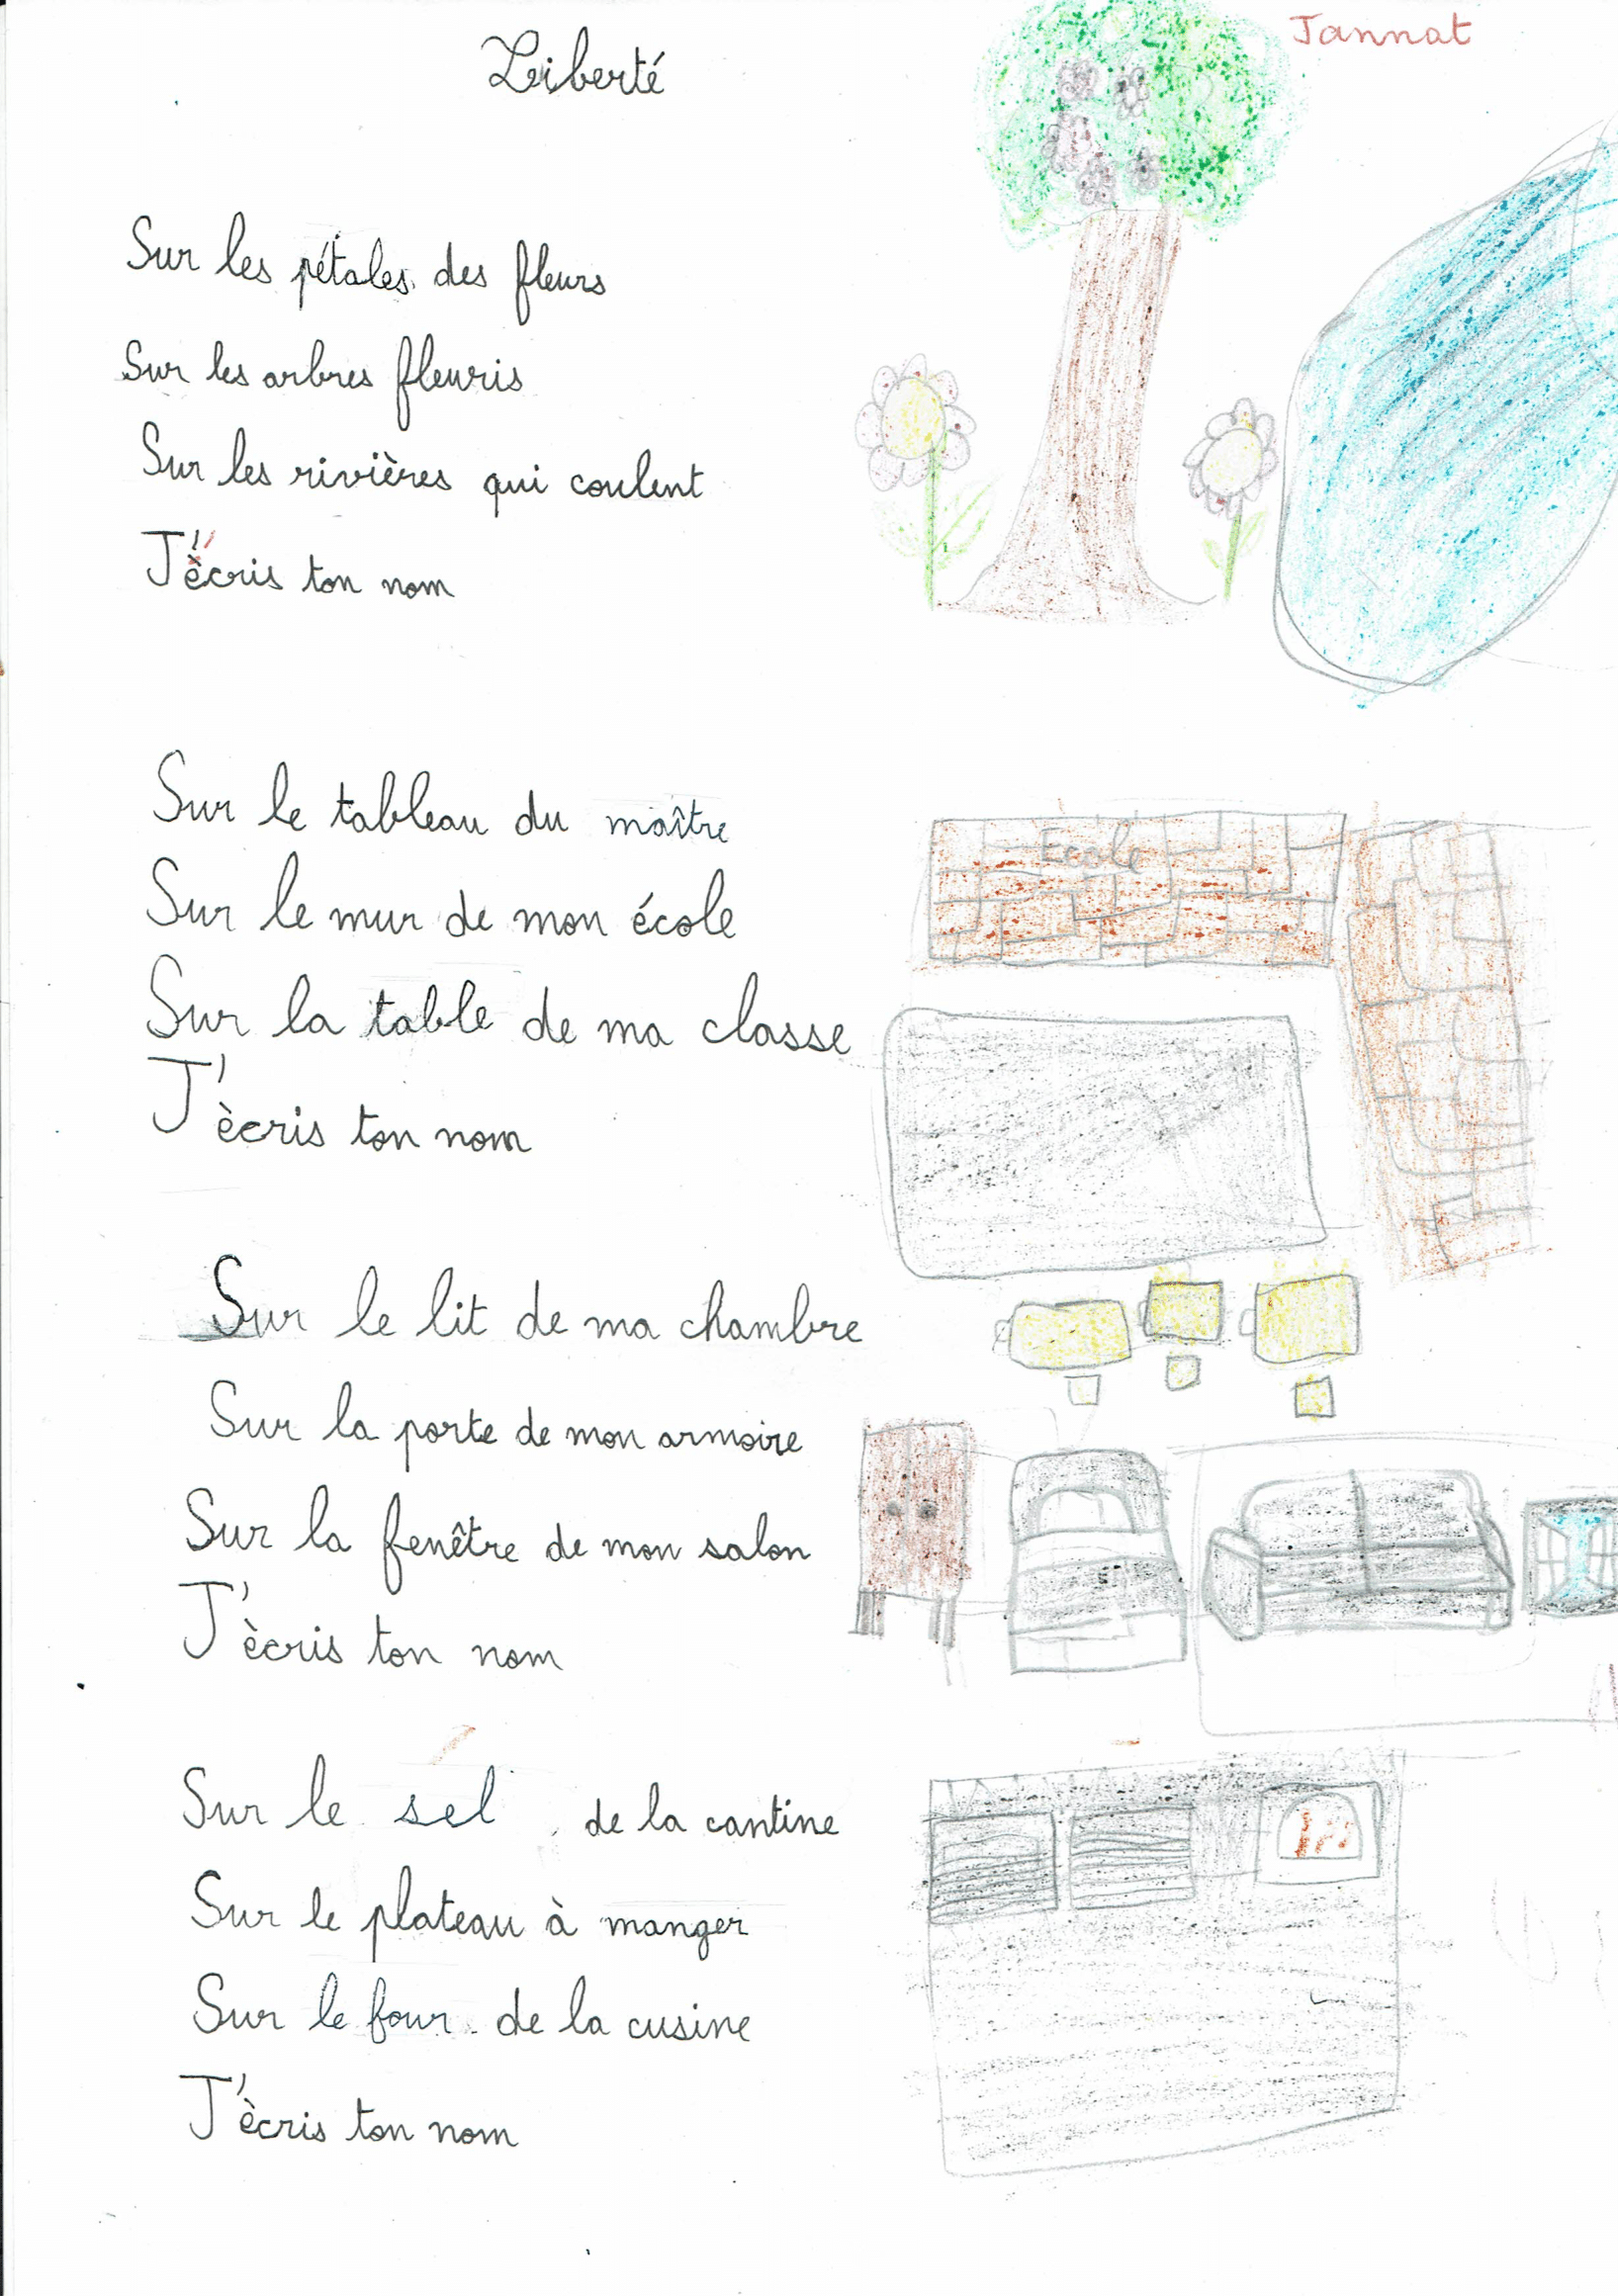 Liberté
Jannat
Sur les pétales des fleurs
Sur les arbres fleuris
Sur les rivières qui coulent
J'écris ton nom
Sur le tableau du maître
Sur le mur de mon école
Sur la table de ma classe
J'ècris ton nom
Ecole
Sur le lit de ma chambre
Sur la porte de mon armoire
Sur la fenêtre de mon salon
J'ècris ton nom
Sur le sel de la cantine
Sur le plateau à manger
Sur le four de la cusine
J'ècris ton nom